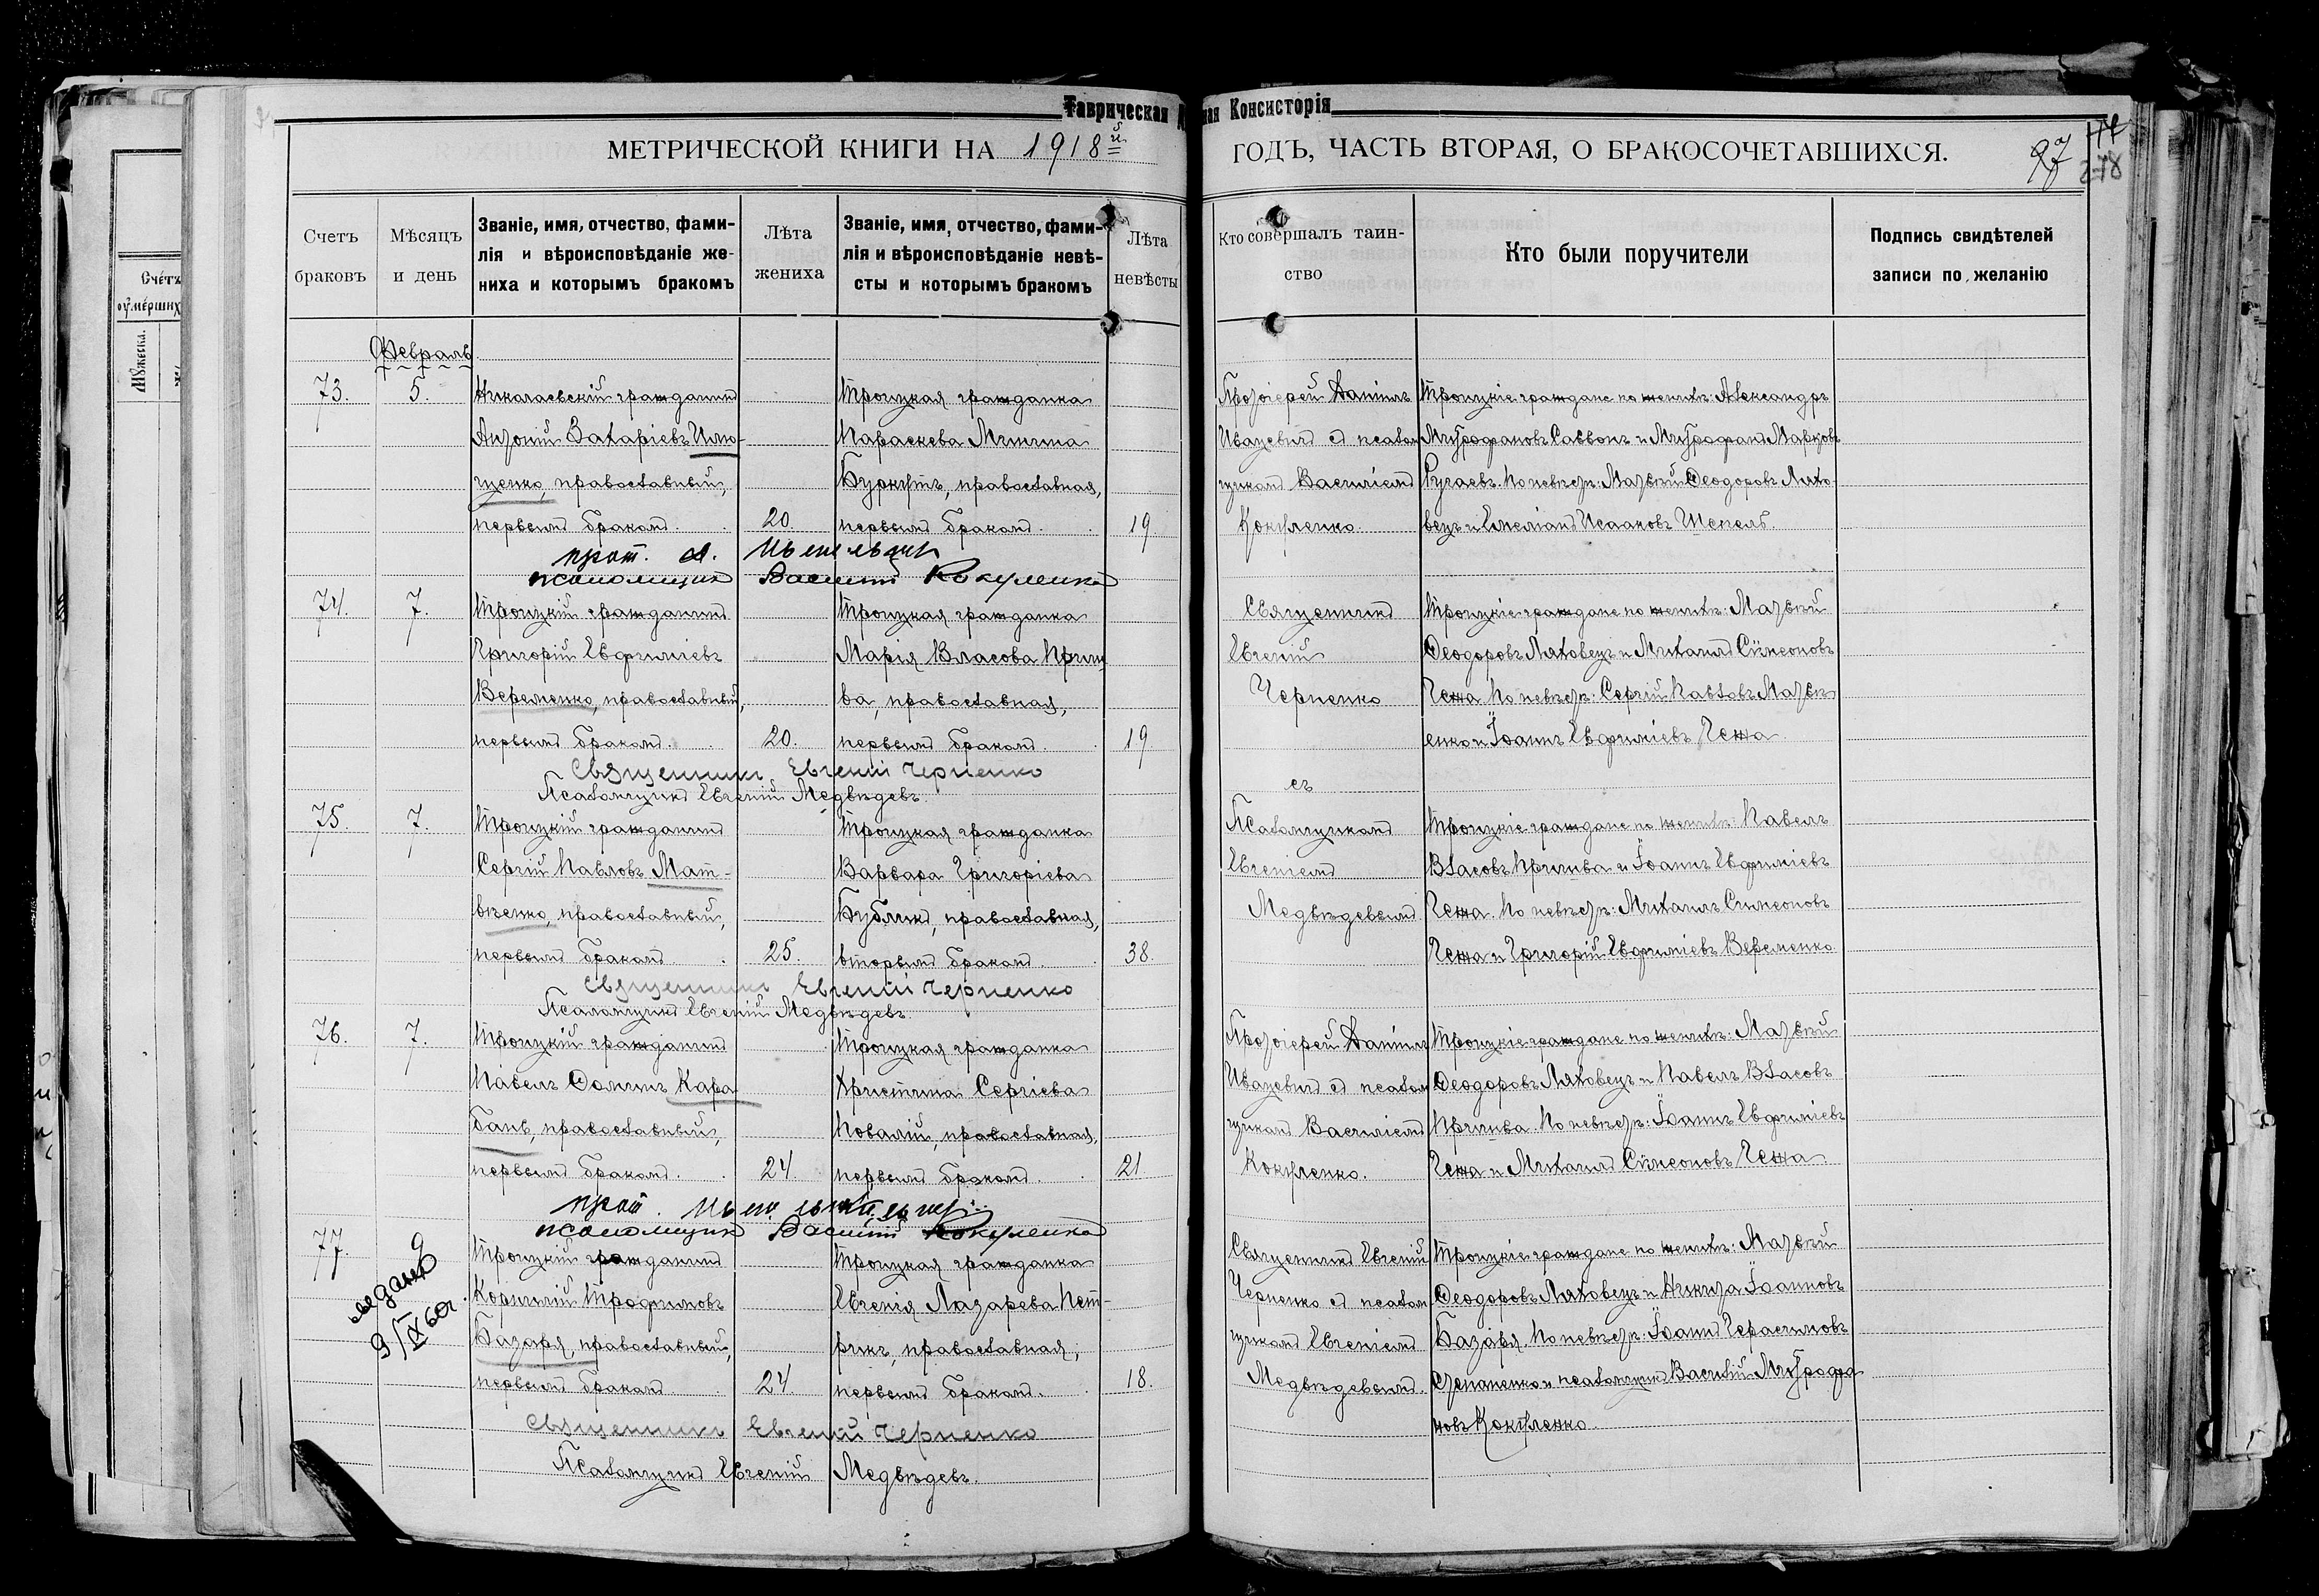 Таврическая
ная Консисторія
МЕТРИЧЕСКОЙ КНИГИ НА 1918й
ГОДЪ, ЧАСТЬ ВТОРАЯ, О БРАКОСОЧЕТАВШИХСЯ.
97
278
Счетъ
умершихъ
Мужеска.
Счетъ браковъ
Мѣсяцъ и день
Званіе, имя, отчество, фами-
лія и вѣроисповѣданіе же-
ниха и которымъ бракомъ
Лѣта жениха
Званіе, имя, отчество, фами-
лія и вѣроисповѣданіе невѣ-
сты и которымъ бракомъ
Лѣта невѣсты
Кто совершалъ таин-
ство
Кто были поручители
Подпись свидѣтелей
записи по желанію
Февраль
73. 5.
Николаевскій гражданинъ
Антоній Захаріевъ Ильо-
щенко, православный,
первымъ бракомъ. 20.
Троицкая гражданка
Параскева Минина
Буркутъ, православная,
первымъ бракомъ. 19.
Протоіерей Даніилъ
Ивацевичъ съ псалом
щикомъ Василіемъ
Кокуленко.
Троицкіе граждане по женихѣ: Александръ
Митрофановъ Саввонъ и Митрофанъ Марковъ
Ругаевъ. По невѣстѣ: Матѳей Ѳеодоровъ Ляхо-
вецъ и Емеліанъ Исааковъ Шепель.
прот. Д.
псаломщикъ Василій Кокуленко
74. 7.
Троицкій гражданинъ
Григорій Евфиміевъ
Веременко, православный,
первымъ бракомъ. 20.
Троицкая гражданка
Марія Власова Причи
ва, православная,
первымъ бракомъ. 19.
Священникъ
Евгеній
Черненко
съ
Троицкіе граждане по женихѣ: Матѳей
Ѳеодоровъ Ляховецъ и Михаилъ Сѵмеоновъ
Чежа. По невѣстѣ: Сергій Павловъ Матвѣ
енко и Іоаннъ Евфиміевъ Чежа.
Священникъ Евгеній Черненко
Псаломщикъ Евгеній Медвѣдевъ.
75. 7.
Троицкій гражданинъ
Сергій Павловъ Мат-
вѣенко, православный,
первымъ бракомъ. 25.
Троицкая гражданка
Варвара Григоріева
Бубликъ, православная,
вторымъ бракомъ. 38.
Псаломщикомъ
Евгеніемъ
Медвѣдевымъ
Троицкіе граждане по женихѣ: Павелъ
Власовъ Причива и Іоаннъ Евфиміевъ
Чежа. По невѣстѣ: Михаилъ Симеоновъ
Чежа и Григорій Евфиміевъ Веременко.
Священникъ Евгеній Черненко
Псаломщикъ Евгеній Медвѣдевъ.
76. 7.
Троицкій гражданинъ
Павелъ Ѳоминъ Кара
бань, православный,
первымъ бракомъ. 24.
Троицкая гражданка
Христина Сергіева
Коваліи, православная,
первымъ бракомъ. 21.
Протоіерей Даніилъ
Ивацевичъ съ псалом
щикомъ Василіемъ
Кокуленко.
Троицкіе граждане по женихѣ: Матѳей
Ѳеодоровъ Ляховецъ и Павелъ Власовъ
Причива. По невѣстѣ: Іоаннъ Евфиміевъ
Чежа и Михаилъ Сѵмеоновъ Чежа.
прот.
псаломщикъ Василій Кокуленко
77. 9
выдано
9/IX 60г.
Троицкій гражданинъ
Корнилій Трофимовъ
Базаря, православный,
первымъ бракомъ. 24.
Троицкая гражданка
Евгенія Лазарева Пет-
рикъ, православная,
первымъ бракомъ. 18.
Священникъ Евгеній
Черненко съ псалом
щикомъ Евгеніемъ
Медвѣдевымъ.
Троицкіе граждане по женихѣ: Матѳей
Ѳеодоровъ Ляховецъ и Никита Іоанновъ
Базаря. По невѣстѣ: Іоаннъ Герасимовъ
Степаненко и псаломщикъ Василій Митрофа
новъ Кокуленко.
Священникъ Евгеній Черненко
Псаломщикъ Евгеній Медвѣдевъ.